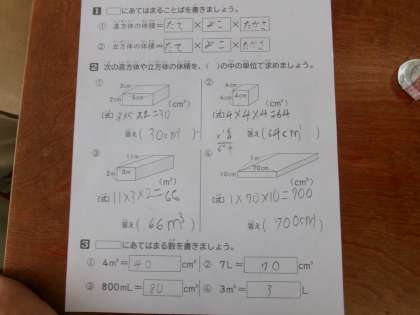 1 □にあてはまることばを書きましょう。
① 直方体の体積＝たて×よこ×たかさ
② 立方体の体積＝たて×よこ×たかさ
2 次の直方体や立方体の体積を、( )の中の単位で求めましょう。
① ②
2cm (cm³) 4cm 4cm 4cm (cm³)
(式) (式) 4×4×4=64
答え( 30cm³ ) 答え( 64cm³ )
③ ④
11m 2m 3m (m³) 1m 70cm 10cm (cm³)
(式) 11×3×2=66 (式) 1×70×10=700
答え( 66m³ ) 答え( 700cm³ )
3 □にあてはまる数を書きましょう。
① 4m³＝ 40 cm³ ② 7L＝ 70 cm³
③ 800mL＝ 80 cm³ ④ 3m³＝ 3 L